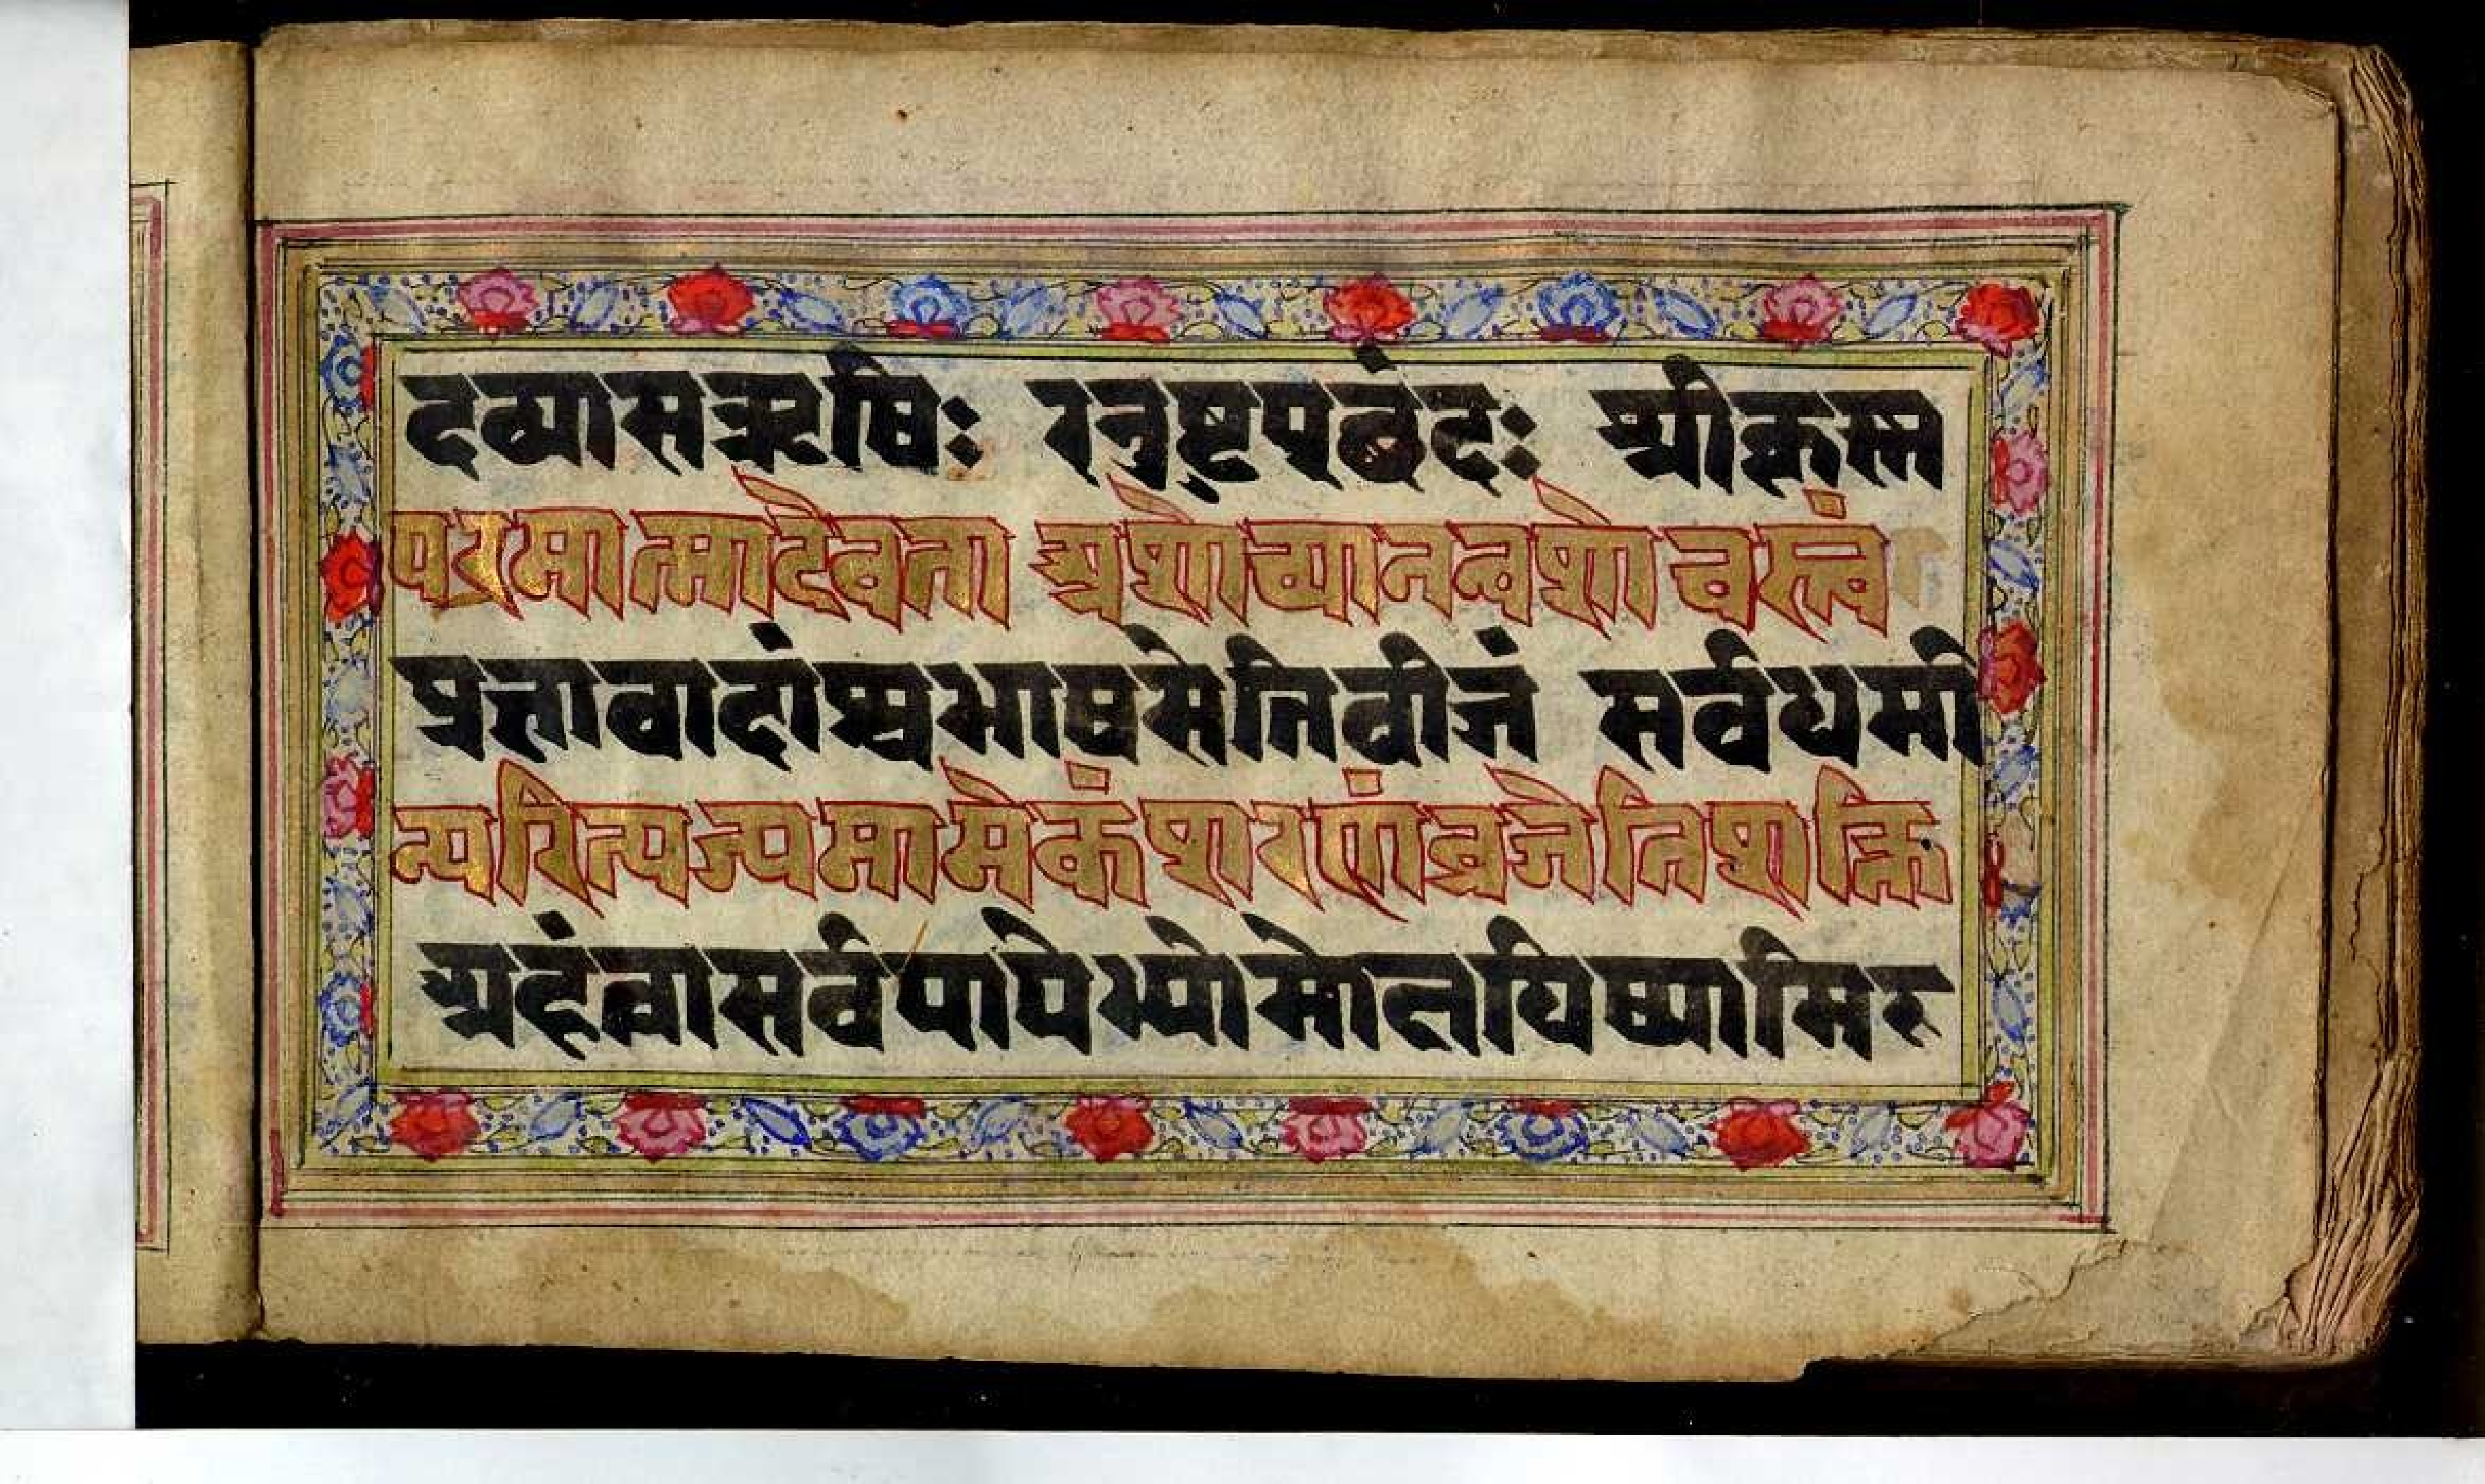 दव्यासऋषिः रनुष्टुपछंदः श्रीकृस्न
परमात्मादेवता अशोच्यानन्वशोचस्त्वं
प्रज्ञावादांश्चभाषसेतिबीजं सर्वधर्मा
न्परित्यज्यमामेकंशरणंव्रजेतिशक्ति
अहंत्वासर्वपापेभ्योमोक्षयिष्यामिरु